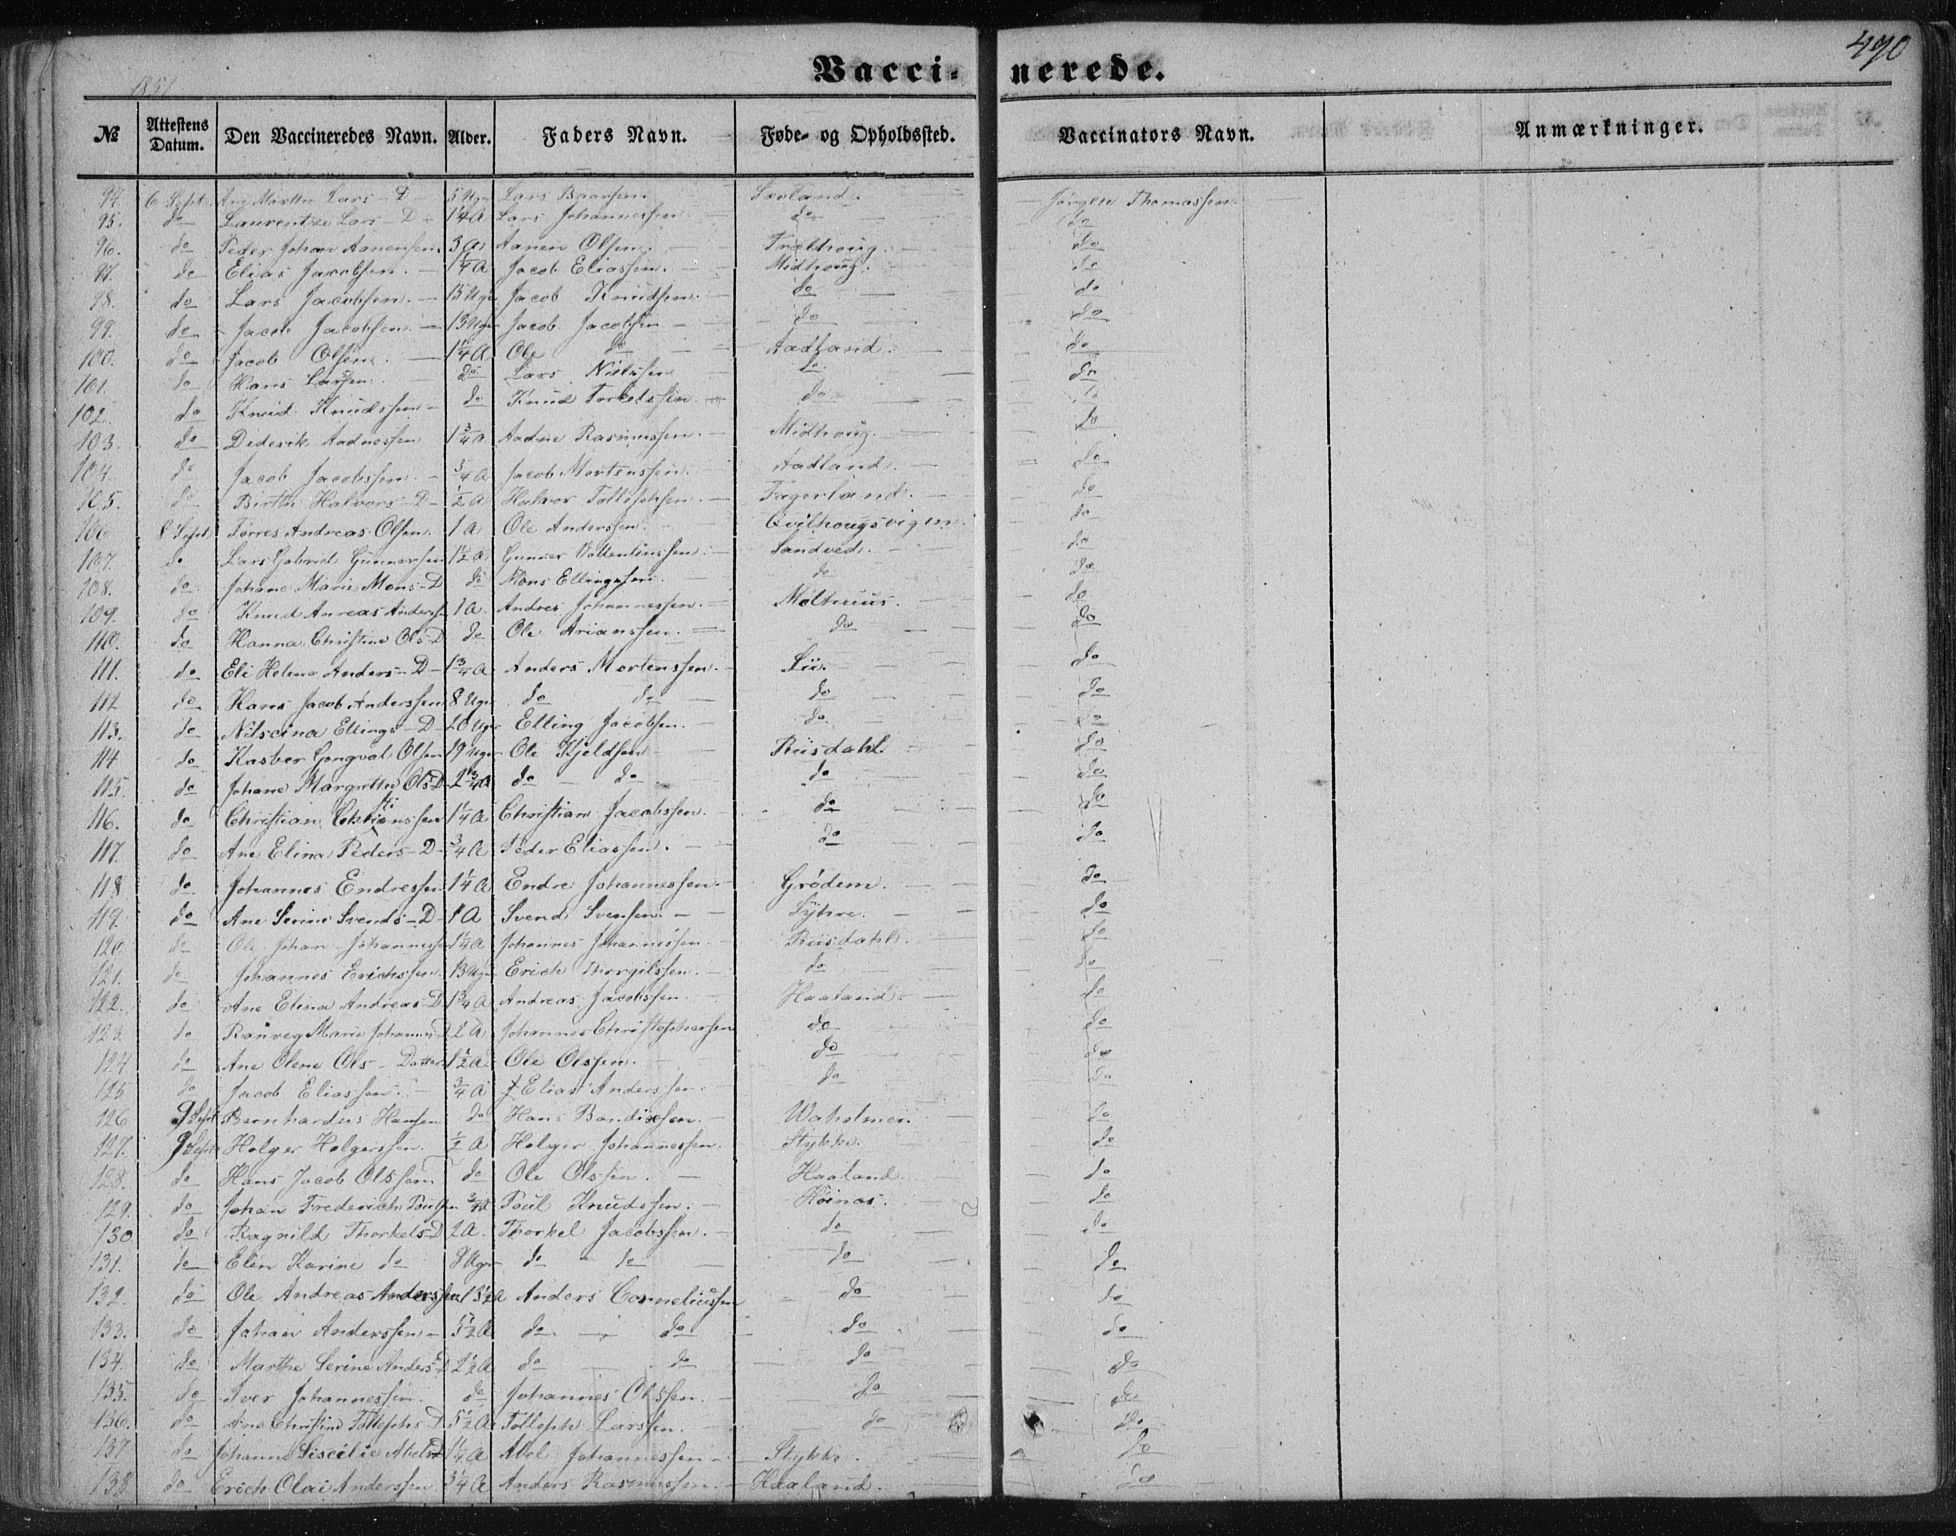 490
1851
Vaccinerede.
№ Attestens Datum. Den Vaccineredes Navn. Alder. Faders Navn. Føde- og Opholdssted. Vaccinators Navn. Anmærkninger.
94. 6 Sept. Ane Marthe Lars-D 5 Uger Lars Jørgen Thomassen
95. do Laurentze Lars-D 1 1/4 A Lars Johannessen do do
96. do Peder Johan Aanensen 3 A Aanen Olsen do
97. do Elias Jacobsen 1 1/4 A Jacob Eliassen Midthoug do
98. do Lars Jacobsen 15 Uger Jacob Knudsen do do
99. do Jacob Jacobsen 13 Uger Jacob Jacobsen do do
100. do Jacob Olsen 1 1/4 A Ole do Aadland do
101. do Hans Larssen do Lars Nielssen do do
102. do Knud Knudssen do Knud Torkelssen do do
103. do Diderik Aadnessen 1 3/4 A Aadne Rasmussen Midthoug do
104. do Jacob Jacobssen 3/4 A Jacob Mortenssen Aadland do
105. do Birthe Halvors-D 1/2 A Halvor Tollefsen Fagerland do
106 8 Sept. Torres Andreas Olsen 1 A Ole Anderssen Qvilhougsvigen do
107. do Lars Gabriel Gunnersen 1 1/2 A Gunner Vallentinssen Sandved do
108. do Johane Marie Mons-D do Mons Ellingssen do do
109. do Knud Anreas Anderssen 1 A. Andres Johannessen Molhuus do
110. do Hanna Christine Ols-D do Ole Arianssen do do
111. do Eli Helene Anders-D 1 3/4 A Anders Mortenssen Lie do
112 do Hans Jacob Anderssen 8 Uger do do do do
113. do Nilseina Ellings-D 20 Uger Elling Jacobsen do do
114 do Kasber Gongval Olsen 19 Uger Ole Kjeldsen Riisdahl do
115. do Johane Margrethe Ols-D 2 3/4 A do do do do
116. do Christian Christianssen 1 1/4 A Christian Jacobssen do do
117. do Ane Elina Peders-D 3/4 A Peder Eliassen do do
118 do Johannes Endressen 1 1/4 A Endre Johannessen Grødem do
119. do Ane Serine Svends-D 1 A Svend Svensen do
120 do Ole Johan Johannessen 1 1/4 A Johannes Johannessen Riisdahl do
121. do Johannes Erichssen 13 Uger Erich Thorgilssen do do
122. do Ane Elina Andreas-D 1 3/4 A Andreas Jacobssen Haaland do
123. do Ranveg Marie Johannes-D 2 A Johannes Christophersen do do
124 do Ane Olene Ols-Datter 1 1/2 A Ole Olssen do do
125 do Jacob Eliassen 3/4 A Elias Anderssen do do
126 9 Sept. Bernhardus Hansen do Hans Bendixsen Waholmen do
127. 9 Sept. Holger Holgerssen 1/2 A Holger Johannessen Stykke do
128. do Hans Jacob Olssen do Ole Olssen Haaland do
129. do Johan Frederich Poulsen 3/4 A Poul Knudssen Høinæs do
130 do Ragnild Thorkels-D 2 A. Thorkel Jacobssen do do
131. do Elen Karine do 8 Uger do do do do
132. do Ole Andreas Anderssen 13 1/2 A Anders Corneliussen do do
133. do Johan Anderssen 5 1/2 A do do do do
134. do Marthe Serine Anders-D 2 1/2 A do do do do
135. do Iver Johannessen do Johannes Olssen do do
136. do Ane Christine Tollephs-D 5 1/2 A Tolleph Larssen do do
137 do Johanne Siscilie Abels-D 1 1/4 A Abel Johannessen Stykke do
138 do Erich Olai Anderssen 3 1/4 A Anders Rasmussen Haaland do